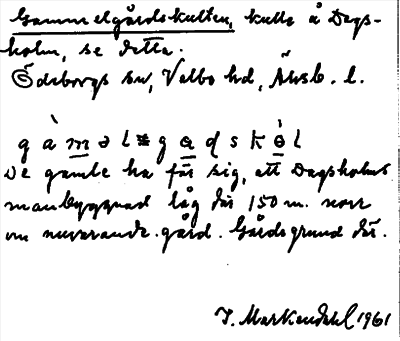 Gammelgårdskullen, kulle å Dags-
holm, se detta.
Ödeborgs sn, Valbo hd, Älvsb. l.
gàməlgadskəl
De gamle ha för sig, att Dagsholms
manbyggnad låg där 150 m. norr
om nuvarande gård. Gårdsgrund där.
J. Markendahl 1961